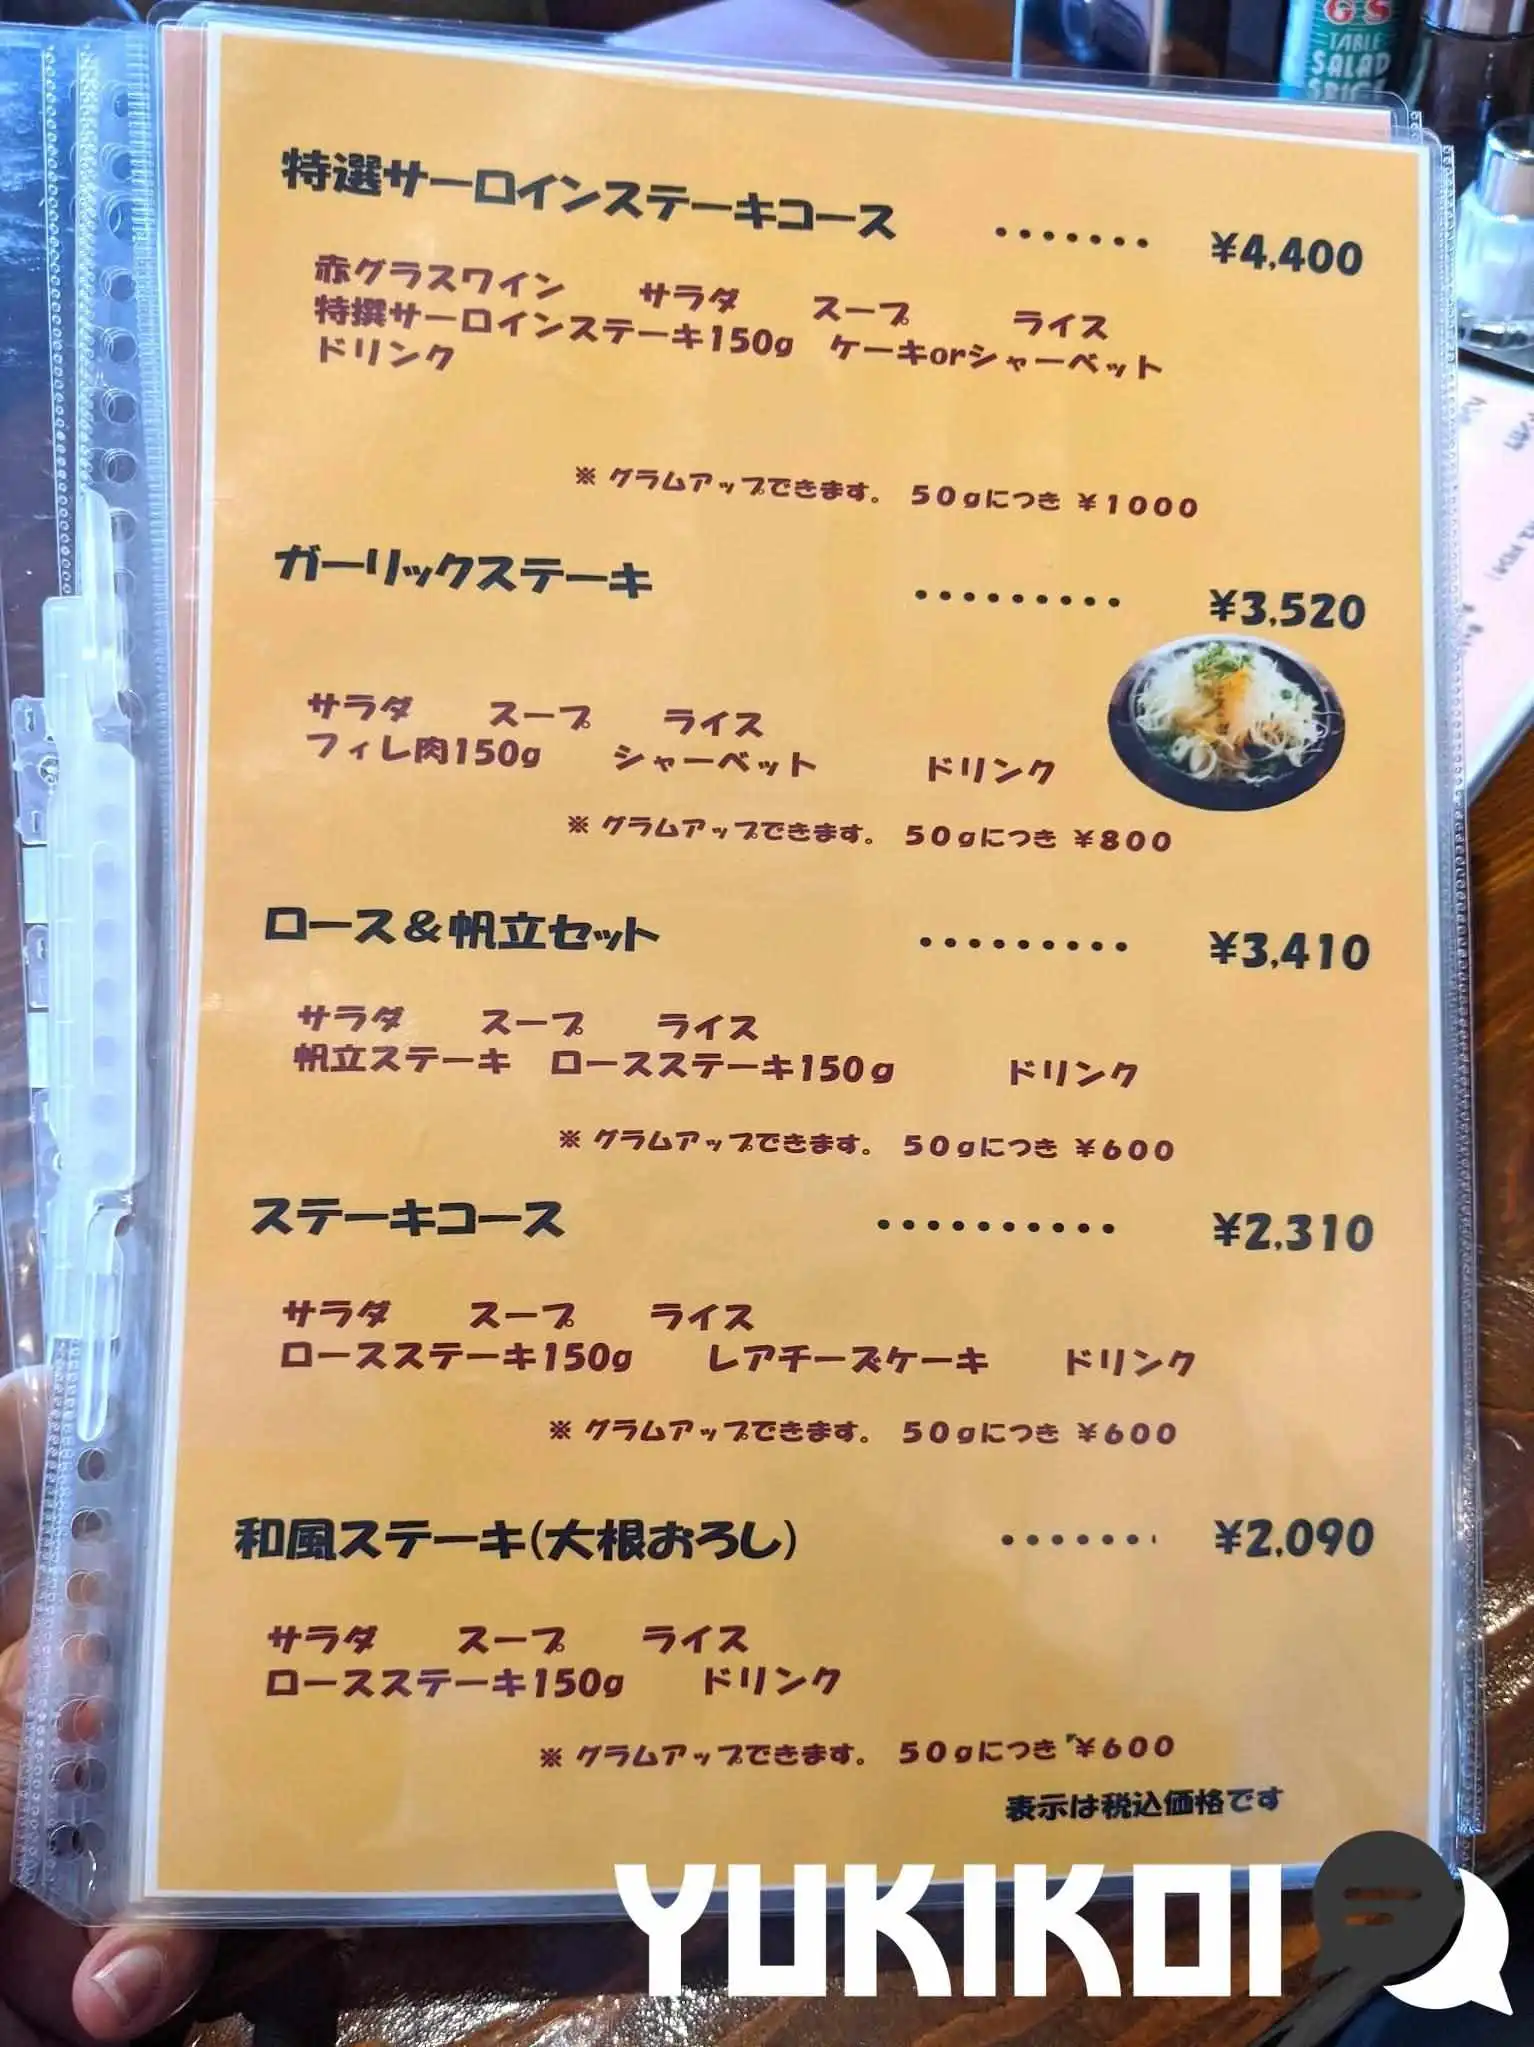 G S
TABLE
SALAD
SPICE
特選サーロインステーキコース ・・・・・・・ ¥4,400
赤グラスワイン サラダ スープ ライス
特撰サーロインステーキ150g ケーキorシャーベット
ドリンク
※ グラムアップできます。 50gにつき ¥1000
ガーリックステーキ ・・・・・・・・・ ¥3,520
サラダ スープ ライス
フィレ肉150g シャーベット ドリンク
※ グラムアップできます。 50gにつき ¥800
ロース&帆立セット ・・・・・・・・・ ¥3,410
サラダ スープ ライス
帆立ステーキ ロースステーキ150g ドリンク
※ グラムアップできます。 50gにつき ¥600
ステーキコース ・・・・・・・・・・ ¥2,310
サラダ スープ ライス
ロースステーキ150g レアチーズケーキ ドリンク
※ グラムアップできます。 50gにつき ¥600
和風ステーキ(大根おろし) ・・・・・・・ ¥2,090
サラダ スープ ライス
ロースステーキ150g ドリンク
※ グラムアップできます。 50gにつき ¥600
表示は税込価格です
YUKIKOI